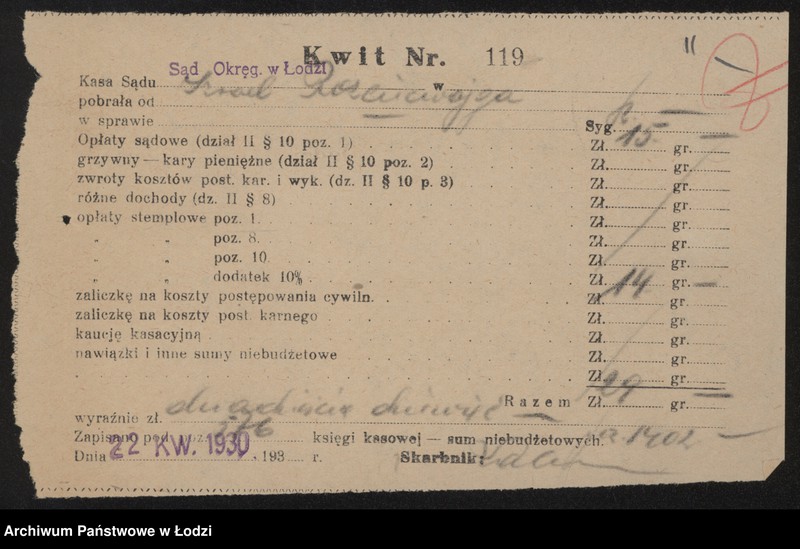 Kwit Nr. 119
Sąd Okręg. w Łodzi
Kasa Sądu w
pobrała od
w sprawie Syg.
Opłaty sądowe (dział II § 10 poz. 1) Zł. 15 gr. —
grzywny — kary pieniężne (dział II § 10 poz. 2) Zł. gr.
zwroty kosztów post. kar. i wyk. (dz. II § 10 p. 3) Zł. gr.
różne dochody (dz. II § 8) Zł. gr.
opłaty stemplowe poz. 1. Zł. gr.
„ „ poz. 8. Zł. gr.
„ „ poz. 10 Zł. gr.
„ „ dodatek 10% Zł. 14 gr. —
zaliczkę na koszty postępowania cywiln. Zł. gr.
zaliczkę na koszty post. karnego Zł. gr.
kaucję kasacyjną Zł. gr.
nawiązki i inne sumy niebudżetowe Zł. gr.
Zł. 29 gr. —
Razem Zł. gr.
wyraźnie zł. dwadzieścia dziewięć —
Zapisano pod poz. 376 księgi kasowej — sum niebudżetowych. 1402 —
Dnia 22 KW. 1930 193 r. Skarbnik:
Archiwum Państwowe w Łodzi